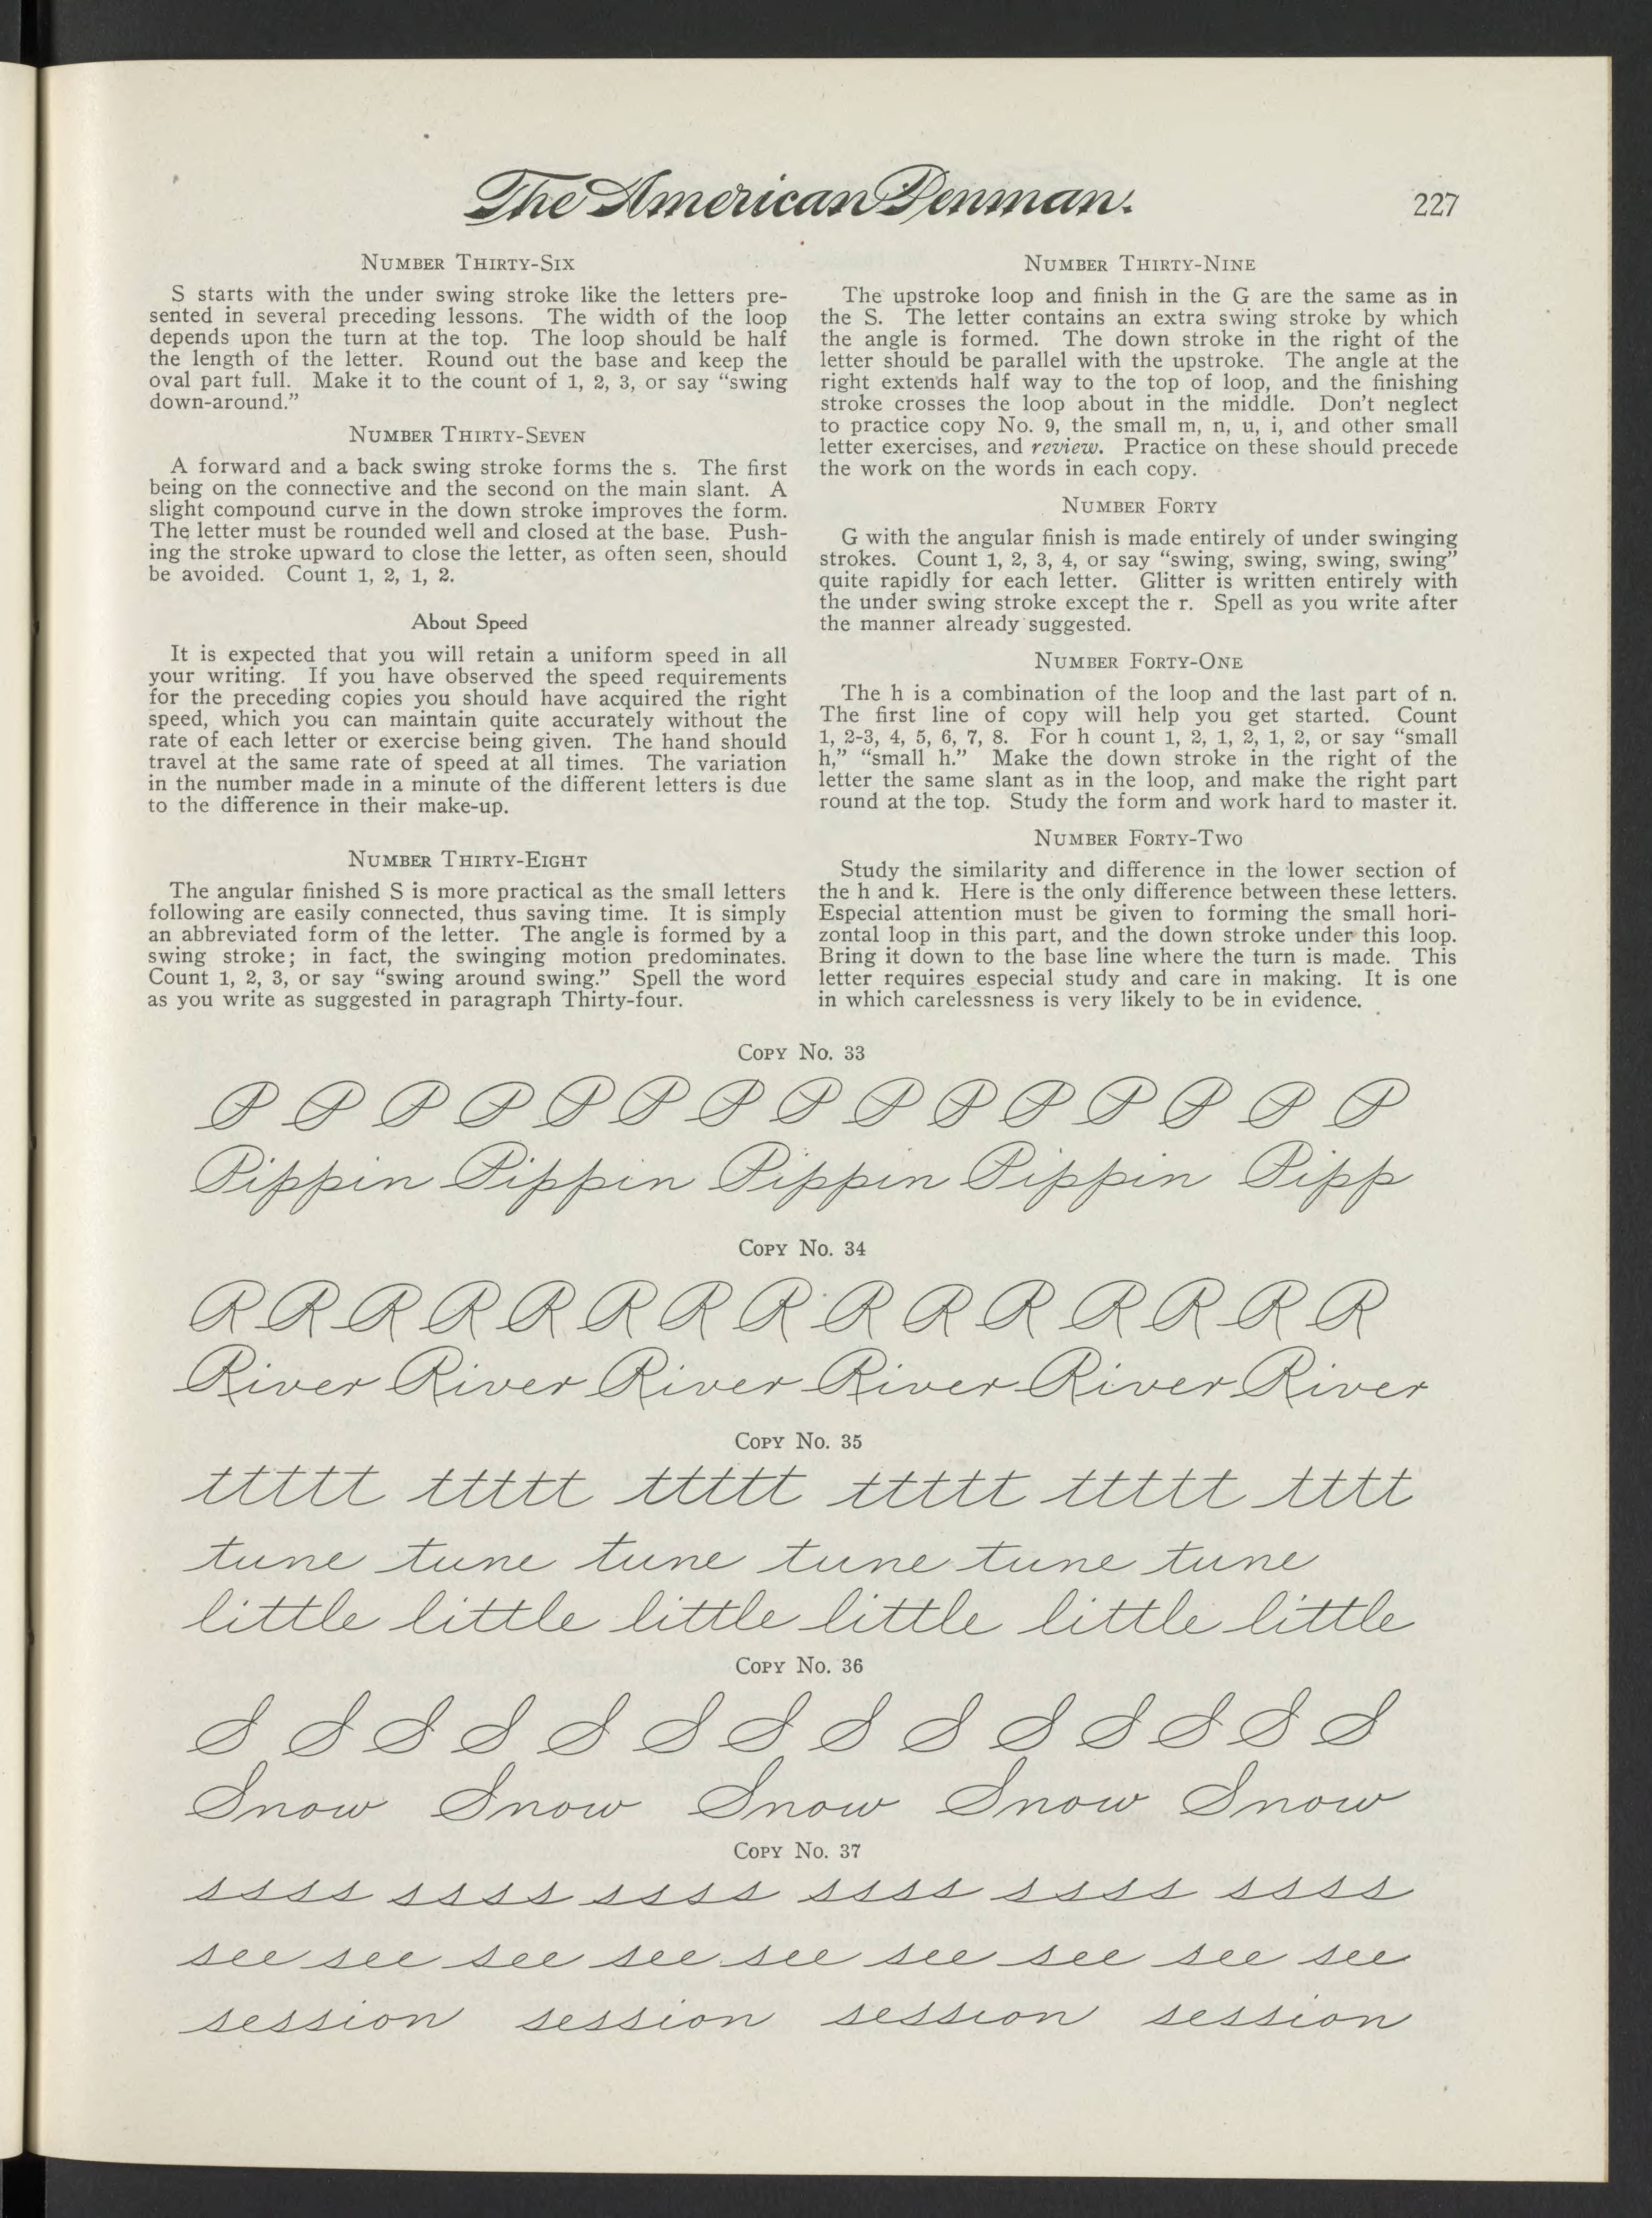 The American Penman.
227
NUMBER THIRTY-SIX
S starts with the under swing stroke like the letters pre-
sented in several preceding lessons. The width of the loop
depends upon the turn at the top. The loop should be half
the length of the letter. Round out the base and keep the
oval part full. Make it to the count of 1, 2, 3, or say “swing
down-around.”
NUMBER THIRTY-SEVEN
A forward and a back swing stroke forms the s. The first
being on the connective and the second on the main slant. A
slight compound curve in the down stroke improves the form.
The letter must be rounded well and closed at the base. Push-
ing the stroke upward to close the letter, as often seen, should
be avoided. Count 1, 2, 1, 2.
About Speed
It is expected that you will retain a uniform speed in all
your writing. If you have observed the speed requirements
for the preceding copies you should have acquired the right
speed, which you can maintain quite accurately without the
rate of each letter or exercise being given. The hand should
travel at the same rate of speed at all times. The variation
in the number made in a minute of the different letters is due
to the difference in their make-up.
NUMBER THIRTY-EIGHT
The angular finished S is more practical as the small letters
following are easily connected, thus saving time. It is simply
an abbreviated form of the letter. The angle is formed by a
swing stroke; in fact, the swinging motion predominates.
Count 1, 2, 3, or say “swing around swing.” Spell the word
as you write as suggested in paragraph Thirty-four.
NUMBER THIRTY-NINE
The upstroke loop and finish in the G are the same as in
the S. The letter contains an extra swing stroke by which
the angle is formed. The down stroke in the right of the
letter should be parallel with the upstroke. The angle at the
right extends half way to the top of loop, and the finishing
stroke crosses the loop about in the middle. Don’t neglect
to practice copy No. 9, the small m, n, u, i, and other small
letter exercises, and review. Practice on these should precede
the work on the words in each copy.
NUMBER FORTY
G with the angular finish is made entirely of under swinging
strokes. Count 1, 2, 3, 4, or say “swing, swing, swing, swing”
quite rapidly for each letter. Glitter is written entirely with
the under swing stroke except the r. Spell as you write after
the manner already suggested.
NUMBER FORTY-ONE
The h is a combination of the loop and the last part of n.
The first line of copy will help you get started. Count
1, 2-3, 4, 5, 6, 7, 8. For h count 1, 2, 1, 2, 1, 2, or say “small
h,” “small h.” Make the down stroke in the right of the
letter the same slant as in the loop, and make the right part
round at the top. Study the form and work hard to master it.
NUMBER FORTY-TWO
Study the similarity and difference in the lower section of
the h and k. Here is the only difference between these letters.
Especial attention must be given to forming the small hori-
zontal loop in this part, and the down stroke under this loop.
Bring it down to the base line where the turn is made. This
letter requires especial study and care in making. It is one
in which carelessness is very likely to be in evidence.
COPY No. 33
P P P P P P P P P P P P P P P
Pippin Pippin Pippin Pippin Pipp
COPY No. 34
R R R R R R R R R R R R R R R
River River River River River River
COPY No. 35
ttttt ttttt ttttt ttttt ttttt tttt
tune tune tune tune tune tune
little little little little little little
COPY No. 36
S S S S S S S S S S S S S S
Snow Snow Snow Snow Snow
COPY No. 37
ssss ssss ssss ssss ssss ssss
see see see see see see see see see
session session session session